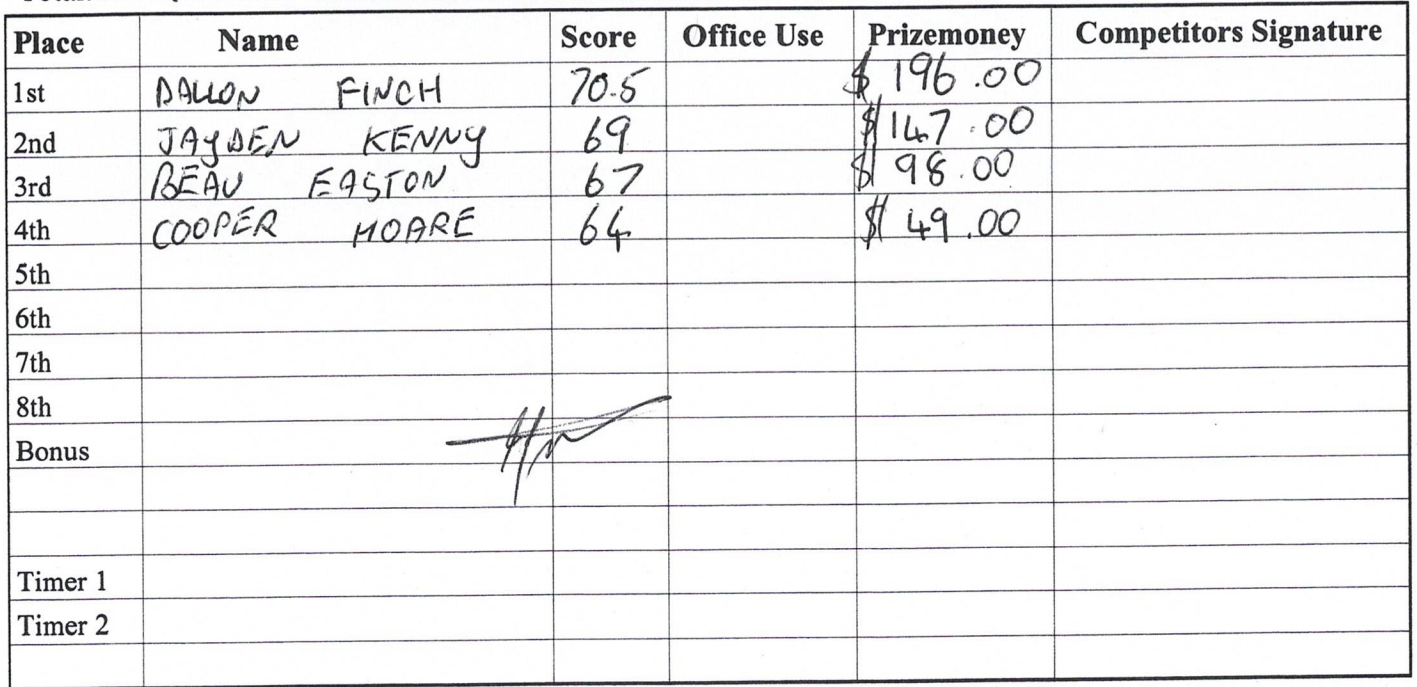 Place Name Score Office Use Prizemoney Competitors Signature
1st DALLON FINCH 70.5 $ 196.00
2nd JAYDEN KENNY 69 $147.00
3rd BEAU EASTON 67 $ 98.00
4th COOPER HOARE 64 $ 49.00
5th
6th
7th
8th
Bonus
Timer 1
Timer 2